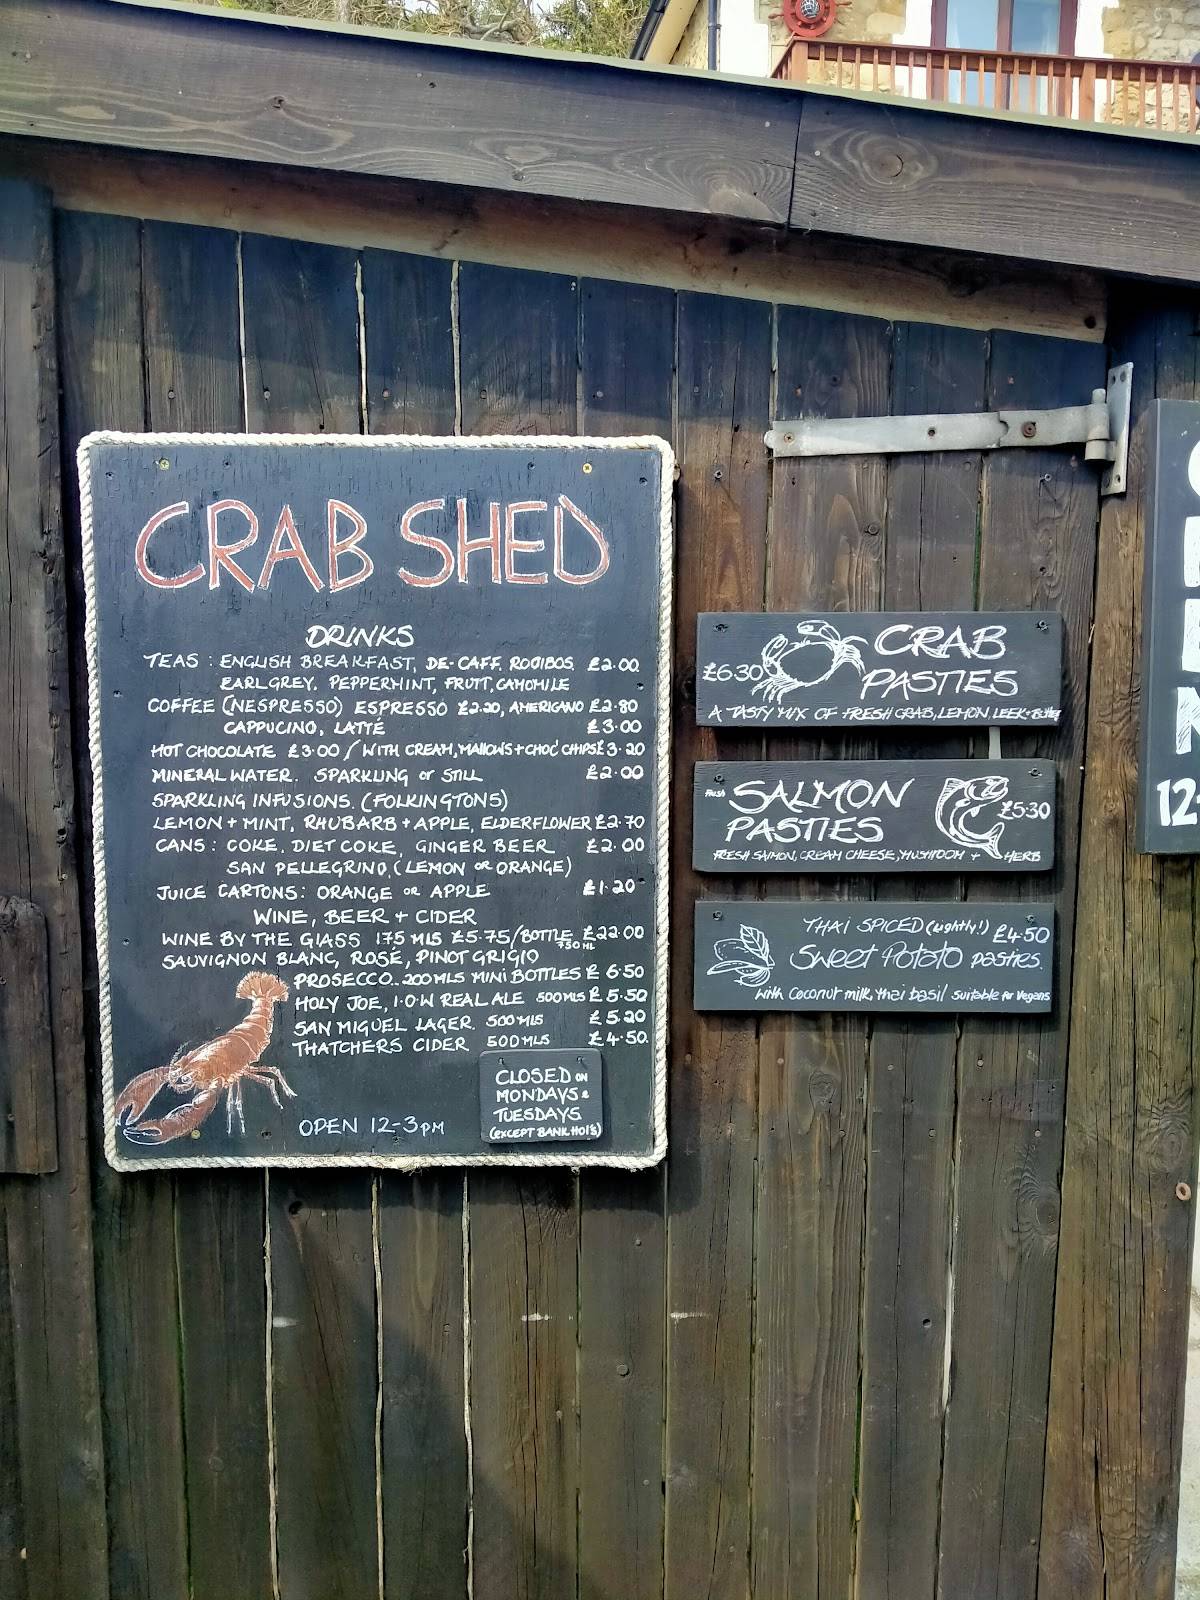 CRAB SHED
DRINKS
TEAS : ENGLISH BREAKFAST, DE-CAFF, ROOIBOS £2.00
EARL GREY, PEPPERMINT, FRUIT, CAMOMILE
COFFEE (NESPRESSO) ESPRESSO £2.20, AMERICANO £2.80
CAPPUCINO, LATTÉ £3.00
HOT CHOCOLATE £3.00 / WITH CREAM, MALLOWS + CHOC' CHIPS £3.20
MINERAL WATER. SPARKLING or STILL £2.00
SPARKLING INFUSIONS. (FOLKINGTONS)
LEMON + MINT, RHUBARB + APPLE, ELDERFLOWER £2.70
CANS : COKE, DIET COKE, GINGER BEER £2.00
SAN PELLEGRINO, (LEMON OR ORANGE)
JUICE CARTONS: ORANGE OR APPLE £1.20
WINE, BEER + CIDER
WINE BY THE GLASS 175 MLS £5.75 / BOTTLE 750 ML £22.00
SAUVIGNON BLANC, ROSÉ, PINOT GRIGIO
PROSECCO.. 200MLS MINI BOTTLES £6.50
HOLY JOE, I.O.W REAL ALE 500MLS £5.50
SAN MIGUEL LAGER. 500MLS £5.20
THATCHERS CIDER 500MLS £4.50.
CLOSED ON
MONDAYS &
TUESDAYS
(EXCEPT BANK HOL'S)
OPEN 12-3PM
£6.30 CRAB
PASTIES
A TASTY MIX OF FRESH CRAB, LEMON, LEEK + BUTTER
FRESH SALMON
PASTIES £5.30
FRESH SALMON, CREAM CHEESE, MUSHROOM + HERB
THAI SPICED (lightly!) £4.50
Sweet Potato pasties.
with Coconut milk, thai basil suitable for vegans
12-